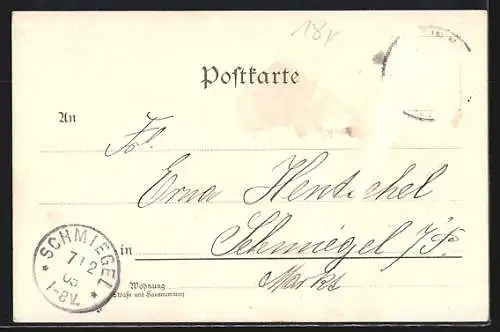 18x
Postkarte
An
Frl.
Erna Hentschel
in Schmiegel i/P.
Markt
Wohnung
(Straße und Hausnummer)
SCHMIEGEL
7 12
03
1-8V.